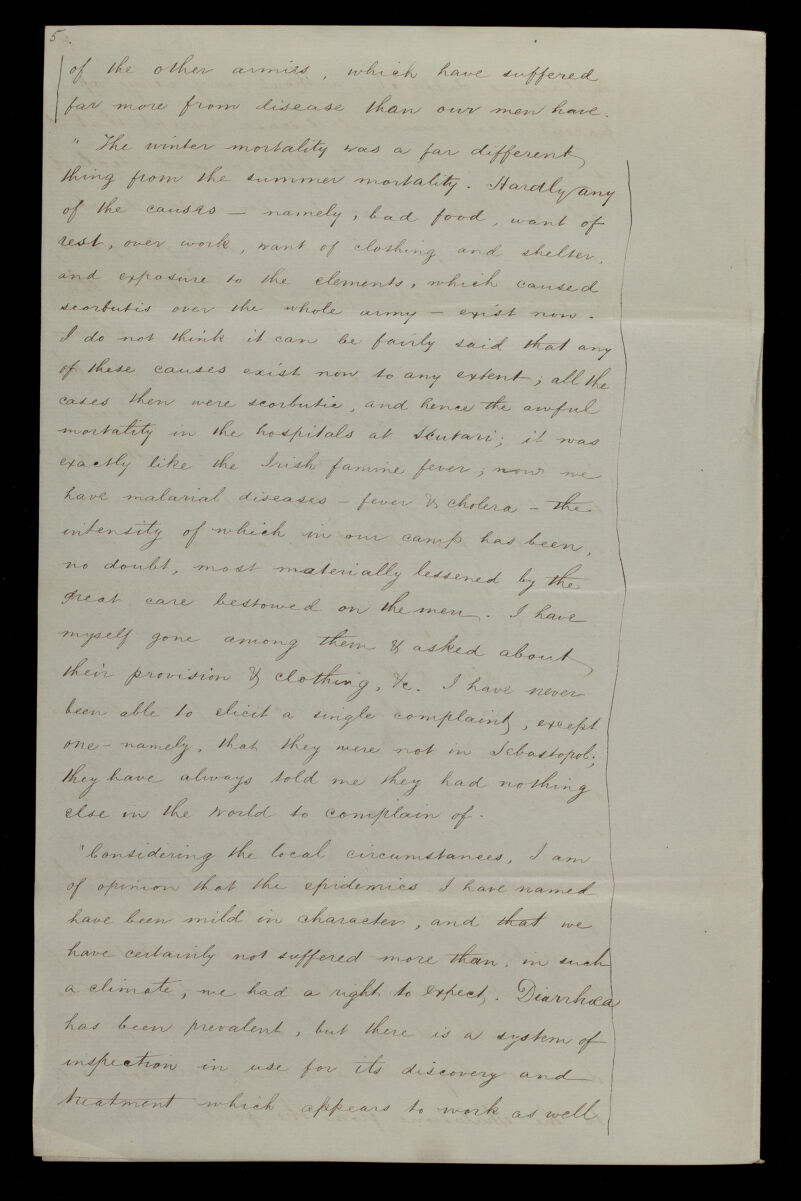 5.
of the other armies, which have suffered
far more from disease than our men have.
" The winter mortality was a far different
thing from the summer mortality. Hardly any
of the causes — namely, bad food, want of
rest, over work, want of clothing and shelter,
and exposure to the elements, which caused
scorbutis over the whole army — exist now.
I do not think it can be fairly said that any
of these causes exist now to any extent; all the
cases then were scorbutic, and hence the awful
mortality in the hospitals at Scutari; it was
exactly like the Irish famine fever; now we
have malarial diseases — fever & cholera — the
intensity of which in our camp has been,
no doubt, most materially lessened by the
great care bestowed on the men. I have
myself gone among them & asked about
their provision & clothing, &c. I have never
been able to elicit a single complaint, except
one — namely, that they were not in Sebastopol;
they have always told me they had nothing
else in the world to complain of.
"Considering the local circumstances, I am
of opinion that the epidemics I have named
have been mild in character, and that we
have certainly not suffered more than, in such
a climate, we had a right to expect. Diarrhœa
has been prevalent, but there is a system of
inspection in use for its discovery and
treatment which appears to work as well